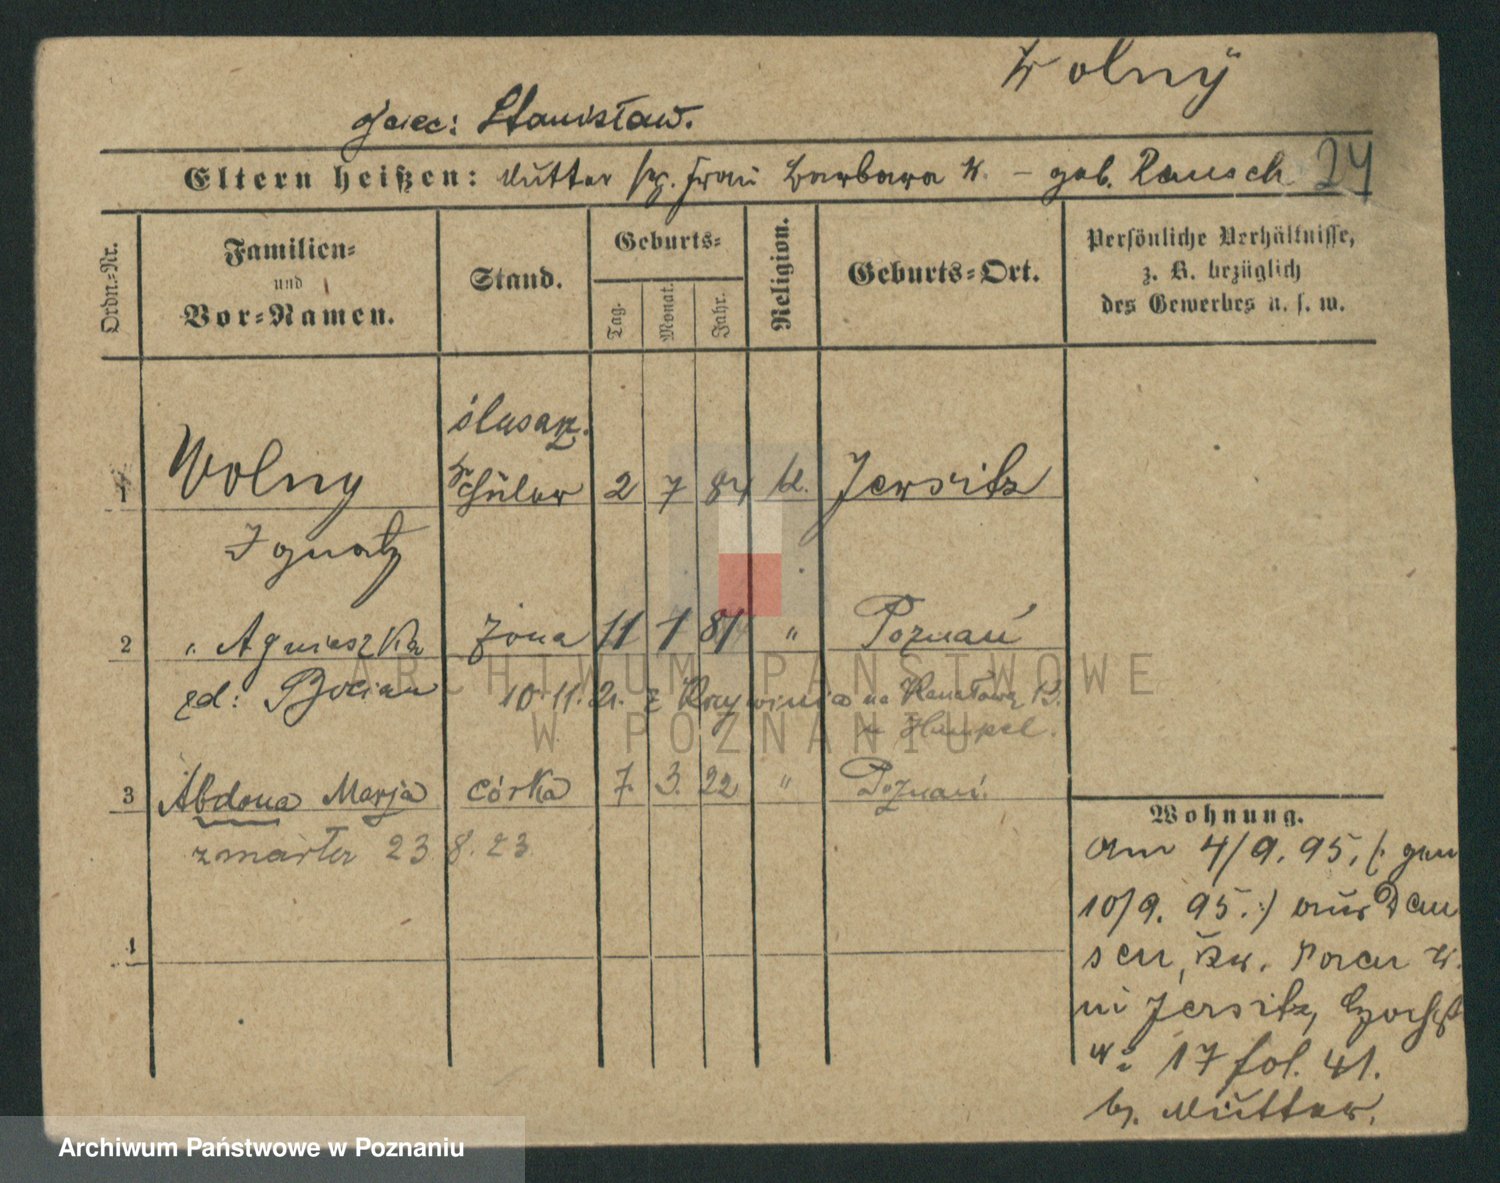 Wolny
ojciec: Stanisław.
Eltern heißen: Mutter Frau Barbara W. – geb. Rausch 24
Ordn.-Nr.
Familien-
und
Vor-Namen.
Stand.
Geburts-
Tag.
Monat.
Jahr.
Religion.
Geburts-Ort.
Persönliche Verhältnisse,
z. B. bezüglich
des Gewerbes u. s. w.
ślusarz.
1 Wolny Schüler 2 7 84 k. Jersitz
Ignatz
2 " Agnieszka żona 11 1 81 " Poznań
zd: Bocian 10.11.21. z Krzywinia na Kanałową 13.
u Hempel.
3 Abdona Marja córka 7. 3. 22 " Poznań.
zmarła 23 8. 23.
4
Wohnung.
Am 4/9. 95. (: gem
10/9. 95. :) aus Dem
sen, Posen W.
in Jersitz,
No 17 fol. 41.
b. Mutter.
ARCHIWUM PAŃSTWOWE
W POZNANIU
Archiwum Państwowe w Poznaniu